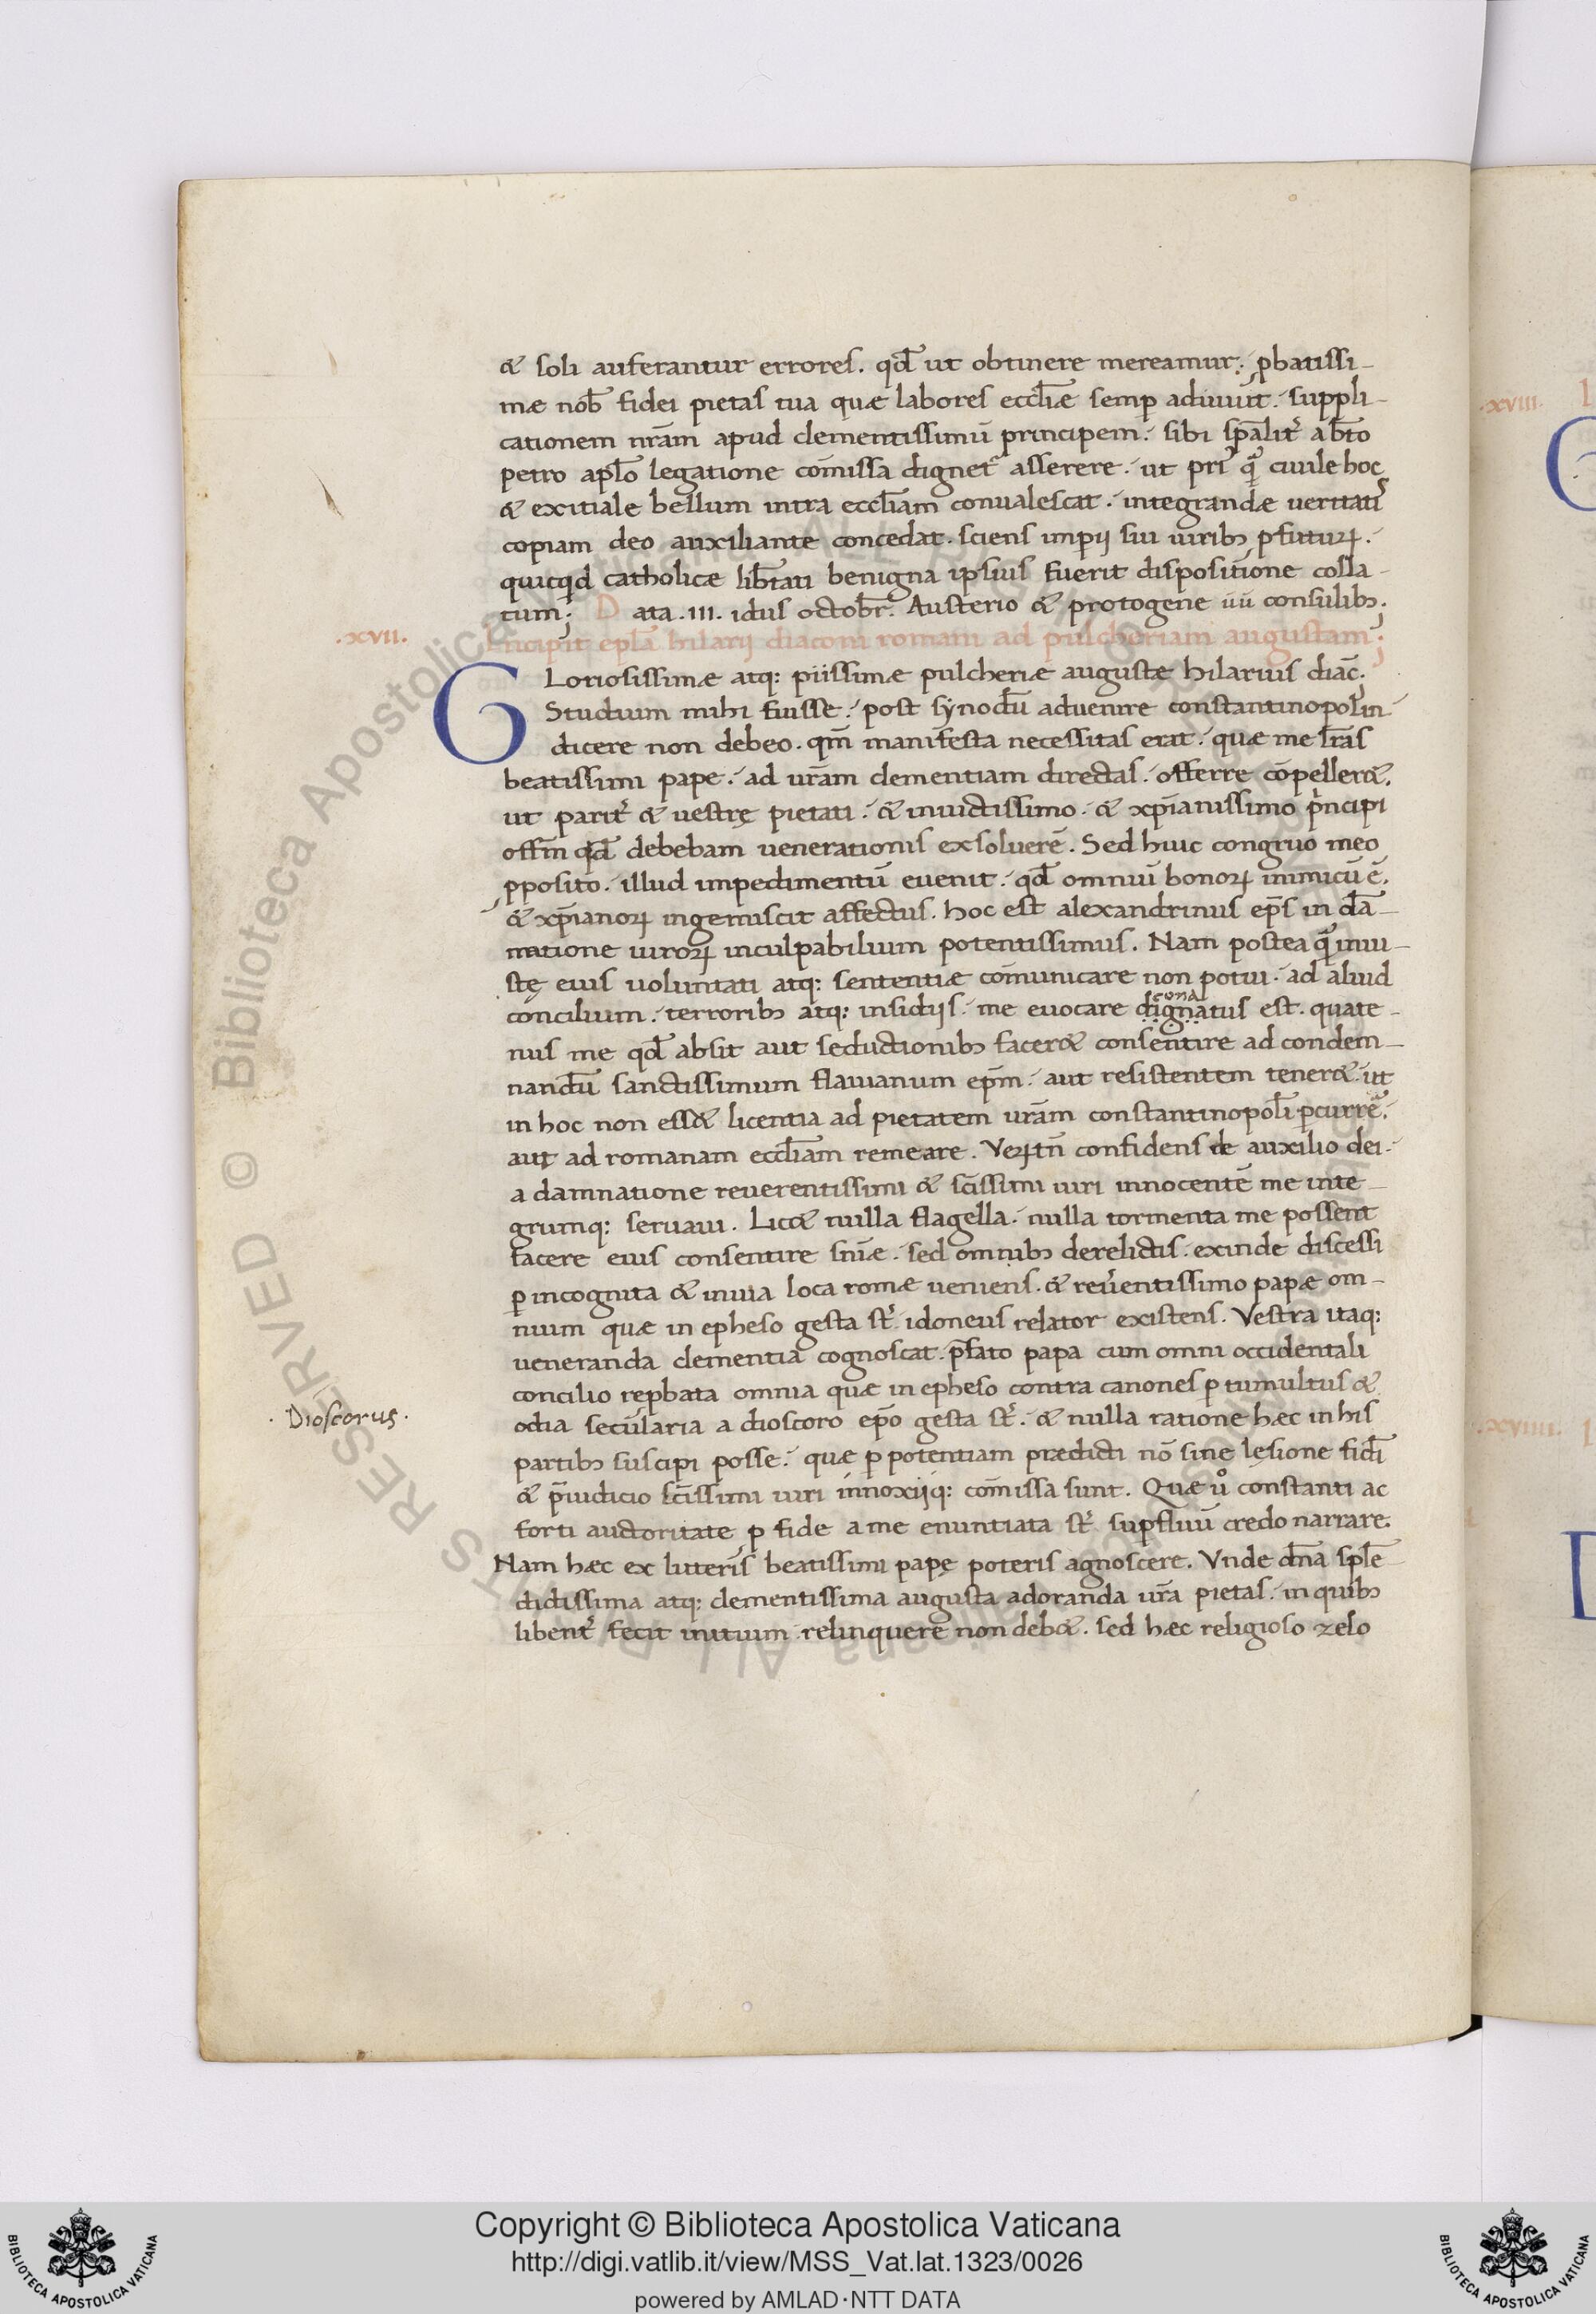 & soli auferantur errores. qđ ut obtinere mereamur; ꝓbatissi-
mæ nob̄ fidei pietas tua quæ labores eccl̄iæ semꝑ adiuuit. suppli-
cationem nr̄am apud clementissimū principem. sibi sp̄alit̓ a b̄to
petro ap̄lo legatione com̄issa dignet᷑ asserere. ut pri᷒ qđ̄ ciuile hoc
& exitiale bellum intra eccl̄iam conualescat. integrandæ ueritati᷒
copiam deo auxiliante concedat. sciens imꝑij sui uirib; ꝓfuturꝝ.
quicqd catholicæ lib̄tati benigna ipsius fuerit dispositione colla-
tum; Data .III. idus octobr̄. Austerio & protogene uū consulib;.
.XVII.
Incipit epl̄a hilarij diaconi romam ad pulcheriam augustam;
Gloriosissimæ atq: piissimæ pulcheriæ augustæ hilarius diac̄.
Studium mihi fuisse. post synodū aduenire constantinopolin
dicere non debeo. qm̄ manifesta necessitas erat. quæ me lr̄as
beatissimi pape. ad ur̄am clementiam directas. offerre cōpeller&.
ut parit̓ & vestrę pietati. & inuictissimo. & xp̄ianissimo p̓ncipi
offm̄ qđ debebam uenerationis exsoluerē. Sed huic congruo meo
ꝓposito. illud impedimentū euenit. qđ omniū bonoꝝ inimicū ē.
& xp̄ianoꝝ ingemiscit affectus. hoc est alexandrinus ep̄s in dā-
natione uiroꝝ inculpabilium potentissimus. Nam postea q̄ iniu-
stę eius uoluntati atq: sententiæ com̄unicare non potui. ad aliud
concilium. terrorib; atq: insidijs. me euocare dignatus est. quate-
cona
nus me qđ absit aut seductionib; facer& consentire ad condem-
nandū sanctissimum flauianum ep̄m. aut resistentem tener&. ut
in hoc non ess& licentia ad pietatem ur̄am constantinopolī ꝑcurrē.
aut ad romanam eccl̄iam remeare. Veꝝtn̄ confidens de auxilio dei.
a damnatione reuerentissimi & sc̄issimi uiri innocentē me inte-
grumq: seruaui. Lic& nulla flagella. nulla tormenta me possent
facere eius consentire sn̄iæ. sed omnib; derelictis. exinde discessi
ꝑ incognita & inuia loca romæ ueniens. & reu̓entissimo papæ om-
nium quæ in epheso gesta st̄. idoneus relator existens. Vestra itaq:
ueneranda clementia cognoscat. p̄fato papa cum omni occidentali
concilio reꝓbata omnia quæ in epheso contra canones ꝑ tumultus &
· Dioscorus ·
odia secularia a dioscoro ep̄o gesta st̄. & nulla ratione hæc in his
partib; suscipi posse. quæ ꝑ potentiam prædicti nō sine lęsione fidī
& p̄iudicio sc̄issimi uiri innoxijq: com̄issa sunt. Quæ ů constanti ac
forti auctoritate ꝓ fide a me enuntiata st̄ suꝑfluū credo narrare.
Nam hæc ex litteris beatissimi papę poteris agnoscere. Vnde dn̄a splē-
didissima atq: clementissima augusta adoranda ur̄a pietas. in quib;
libent̓ fecit initium relinquere non deb&. sed hæc religioso zelo
.XVIII.
.XVIIII.
Copyright © Biblioteca Apostolica Vaticana
http://digi.vatlib.it/view/MSS_Vat.lat.1323/0026
powered by AMLAD·NTT DATA